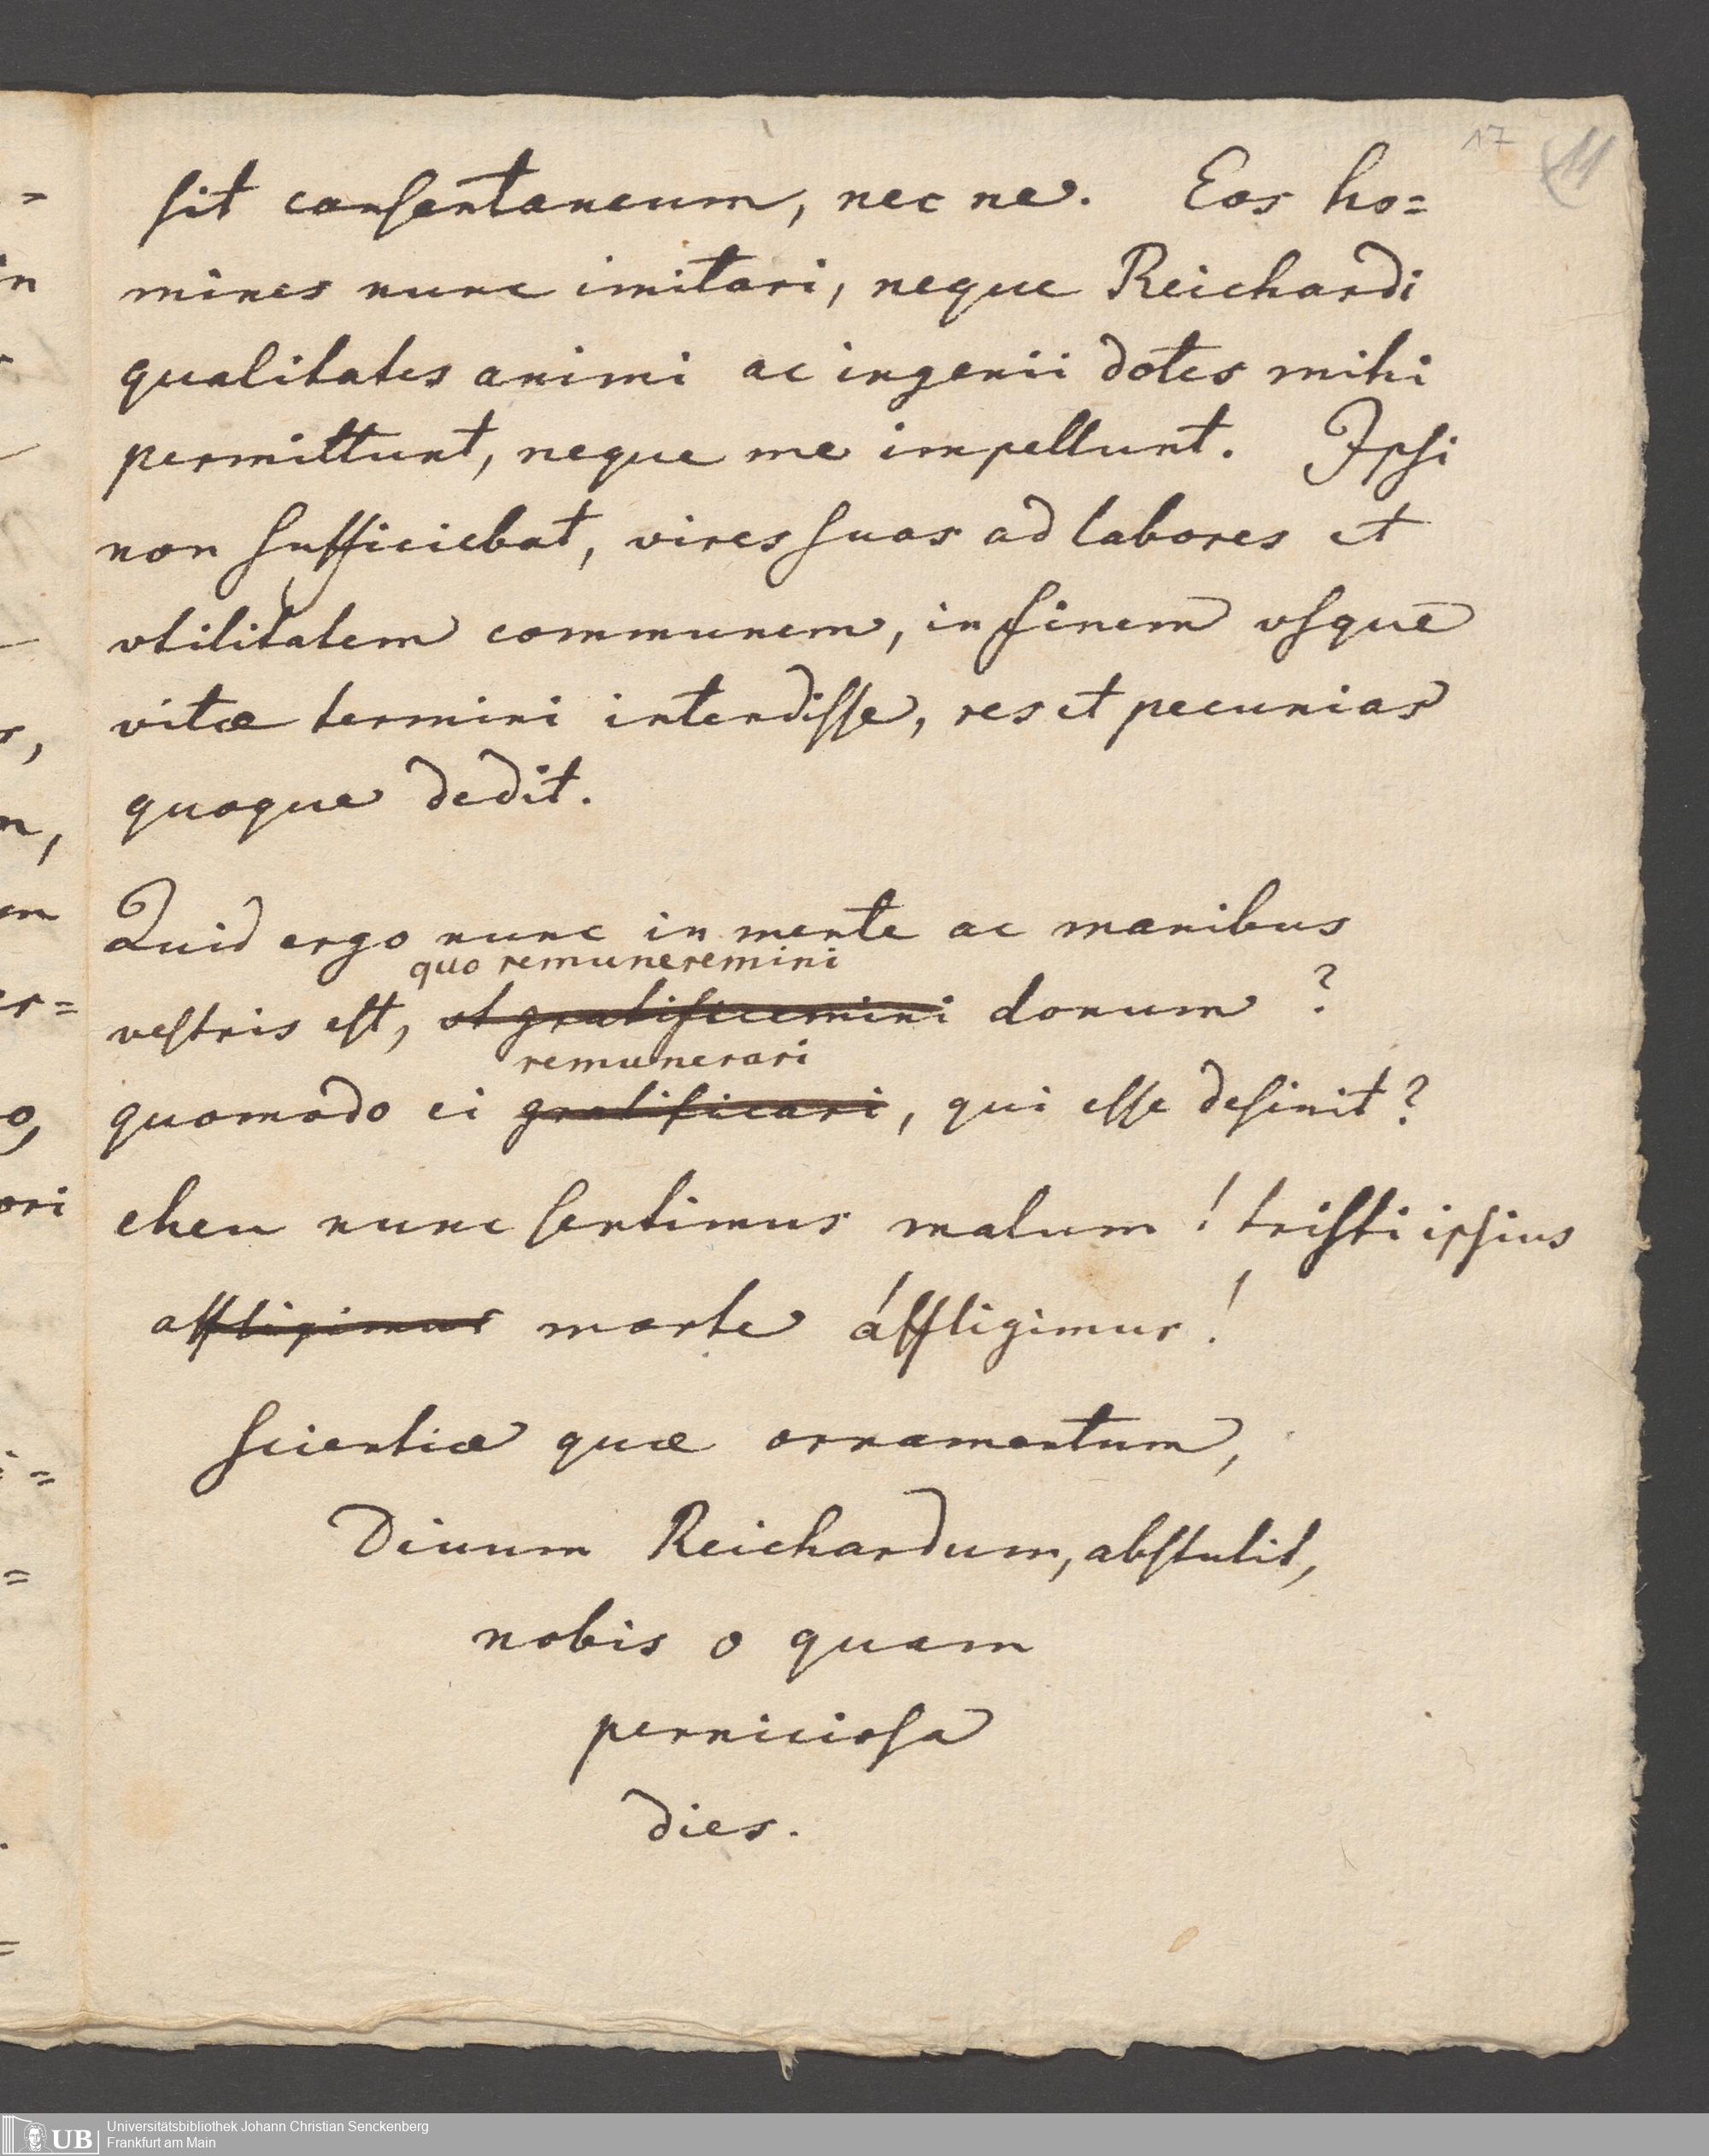 17
11
sit consentaneum, nec ne. Eos ho=
mines nunc imitari, neque Reichardi
qualitates animi ac ingenii dotes mihi
permittunt, neque me impellunt. Ipsi
non sufficiebat, vires suas ad labores et
vtilitatem communem, in finem vsque
vitæ termini intendisse, res et pecunias
quoque dedit.
Quid ergo nunc in mente ac manibus
quo remuneremini
vestris est, vt gratificemini donum ?
remunerari
quomodo ei gratificari, qui esse desinit?
eheu nunc sentimus malum ! tristi ipsius
affligimur morte affligimur!
scientiæ quæ ornamentum,
Diuum Reichardum, abstulit,
nobis o quam
perniciosa
dies.
UB
Universitätsbibliothek Johann Christian Senckenberg
Frankfurt am Main